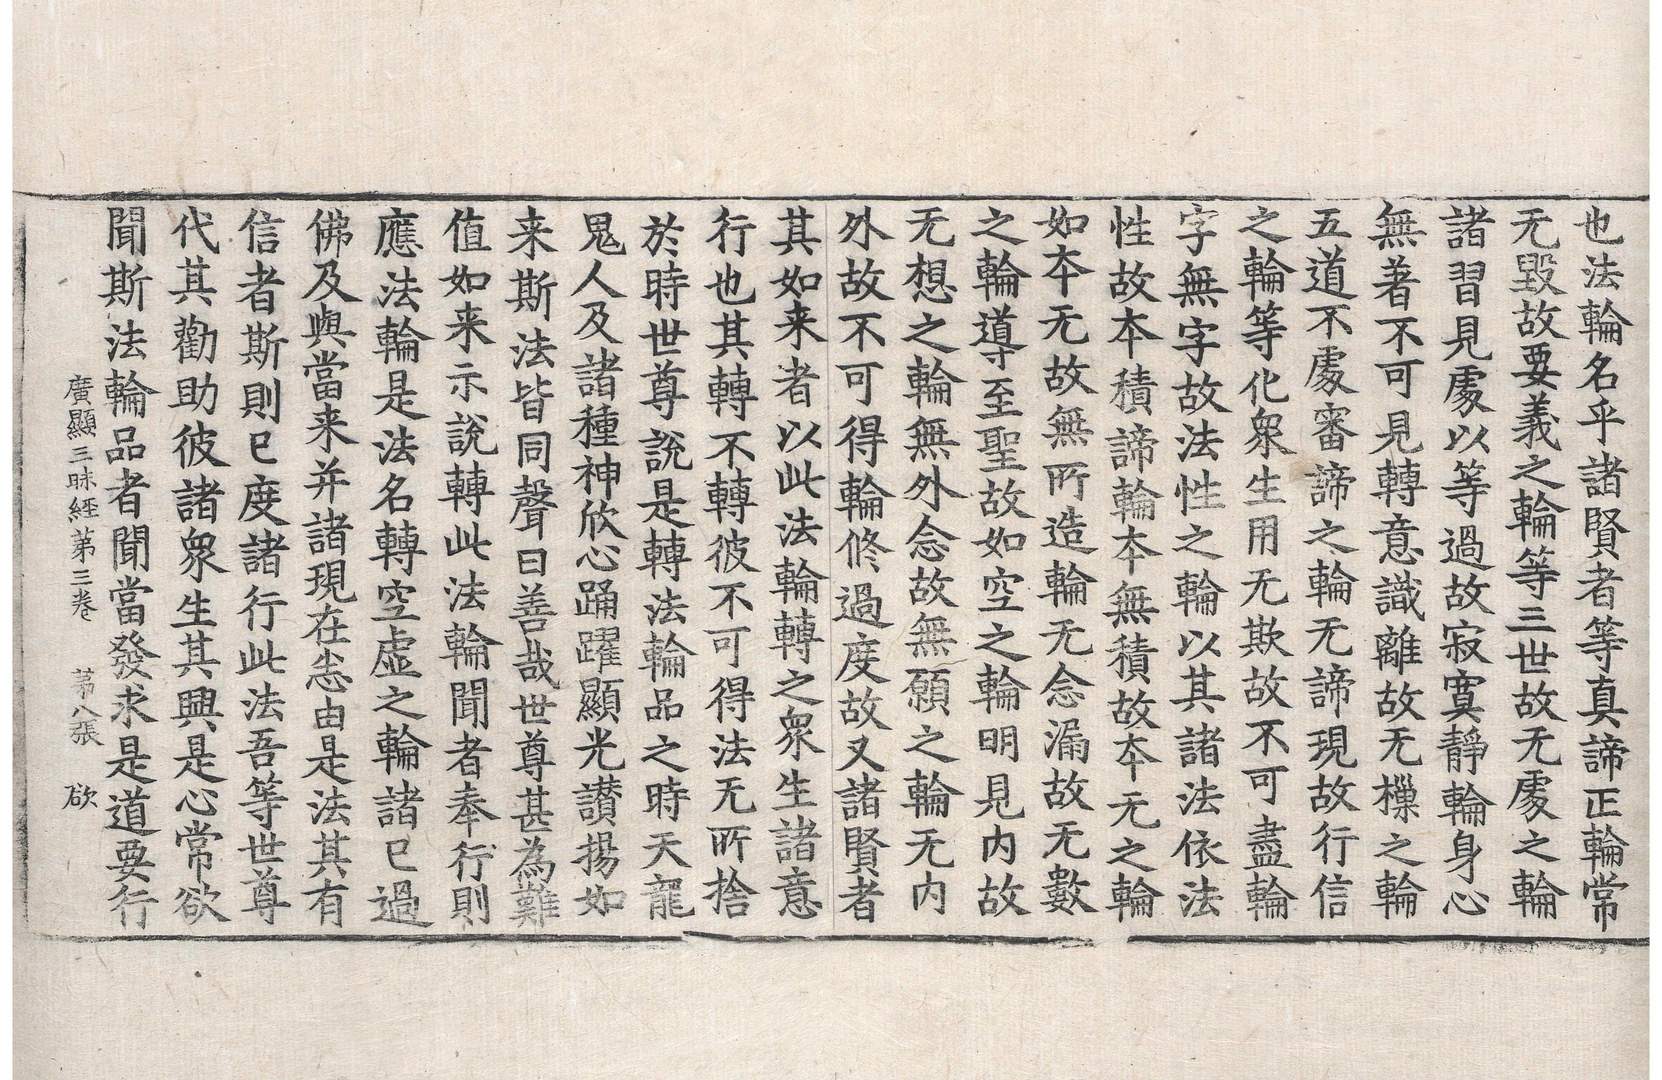 也法輪名乎諸賢者等真諦正輪常
无毀故要義之輪等三世故无處之輪
諸習見處以等過故寂寞靜輪身心
無著不可見轉意識離故无樔之輪
五道不處審諦之輪无諦現故行信
之輪等化衆生用无欺故不可盡輪
字無字故法性之輪以其諸法依法
性故本積諦輪本無積故本无之輪
如本无故無所造輪无念漏故无數
之輪導至聖故如空之輪明見内故
无想之輪無外念故無願之輪无内
外故不可得輪修過度故又諸賢者
其如来者以此法輪轉之衆生諸意
行也其轉不轉彼不可得法无所捨
於時世尊說是轉法輪品之時天龍
鬼人及諸種神欣心踊躍顯光讃揚如
来斯法皆同聲曰善哉世尊甚為難
值如来示說轉此法輪聞者奉行則
應法輪是法名轉空虚之輪諸已過
佛及與當来并諸現在恚由是法其有
信者斯則已度諸行此法吾等世尊
代其勸助彼諸衆生其興是心常欲
聞斯法輪品者聞當發求是道要行
廣顯三昧経第三卷　第八張　欲